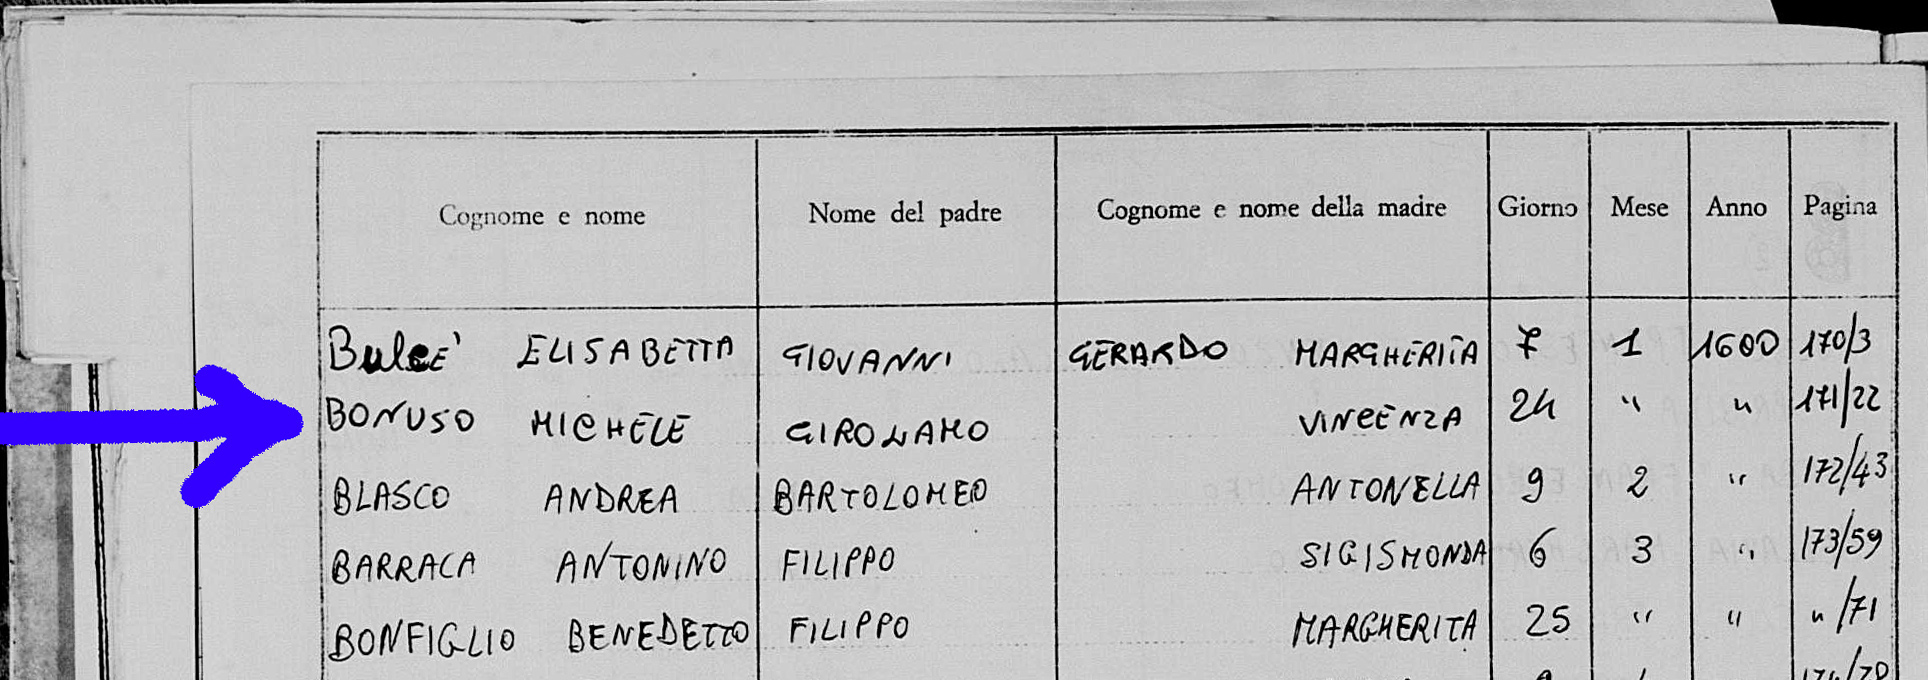 Cognome e nome Nome del padre Cognome e nome della madre Giorno Mese Anno Pagina
BulcE' ELISABETTA GIOVANNI GERARDO MARGHERITA 7 1 1600 170/3
BONUSO MICHELE GIROLAMO VINCENZA 24 " " 171/22
BLASCO ANDREA BARTOLOMEO ANTONELLA 9 2 " 172/43
BARRACA ANTONINO FILIPPO SIGISMONDA 6 3 " 173/59
BONFIGLIO BENEDETTO FILIPPO MARGHERITA 25 " " "/71